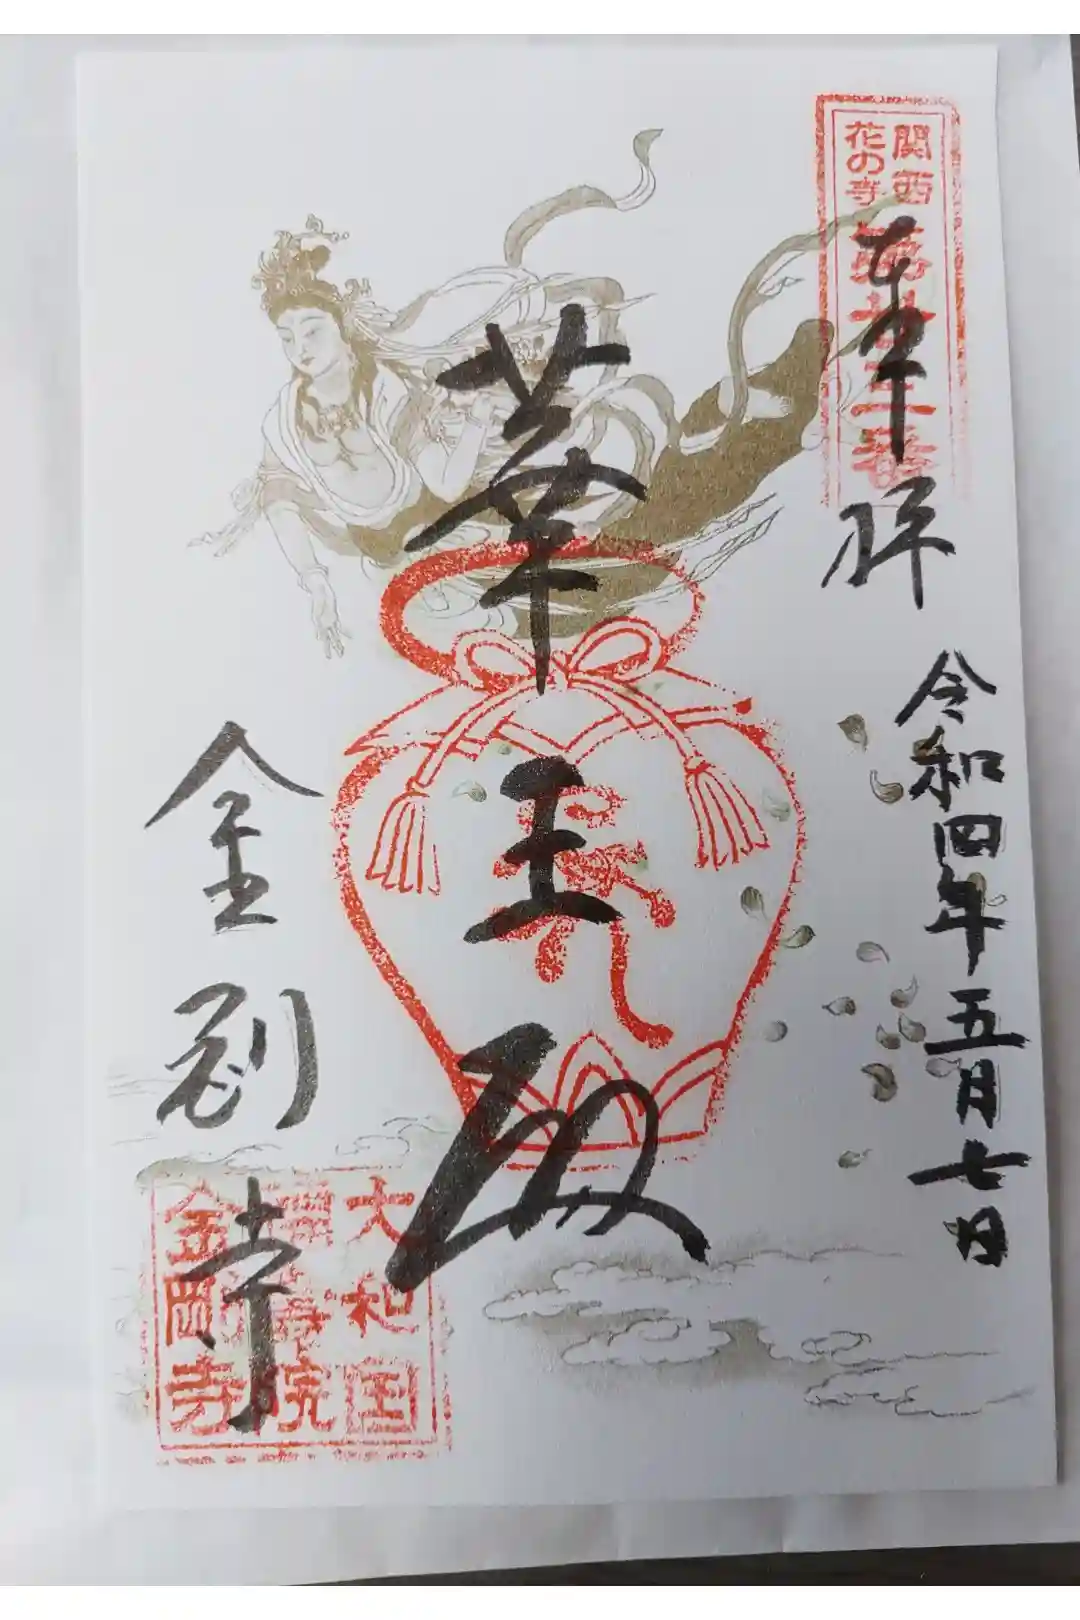 関西
花の寺
第廿三番
奉拝
令和四年五月七日
華王殿
金剛寺
大和国
院
金剛寺